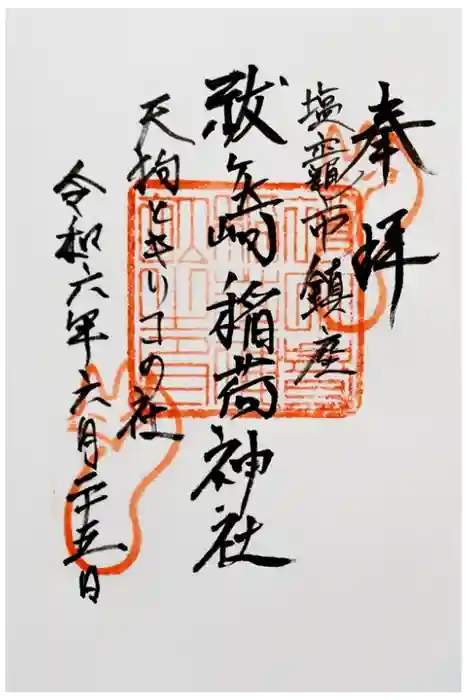 奉拝
塩竈市鎮座
祓ヶ崎稲荷神社
天狗とキリコの社
令和六年六月二十五日